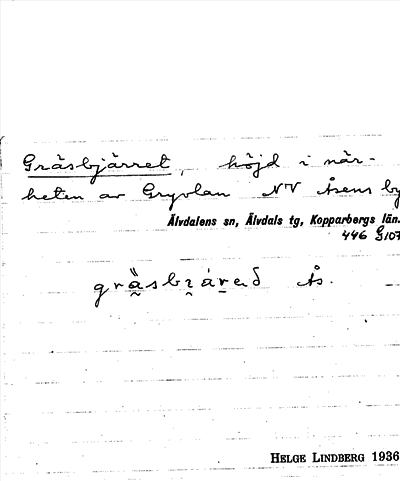 Gräsbjärret, höjd i när-
heten av Gryvlan NV Åsens by
Älvdalens sn, Älvdals tg, Kopparbergs län.
446 G107
Ås.
HELGE LINDBERG 1936